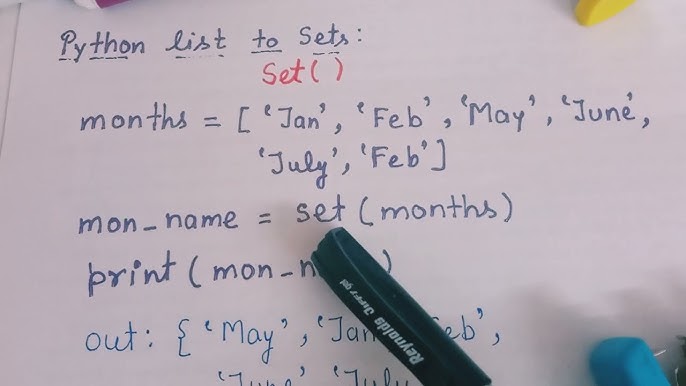 Python list to Sets:
Set()
months = [ 'Jan', 'Feb', 'May', 'June',
'July', 'Feb' ]
mon_name = set (months)
print ( mon_n )
out: { 'May', 'Jan Feb',
'June' 'July
Reynolds Jiffy gel